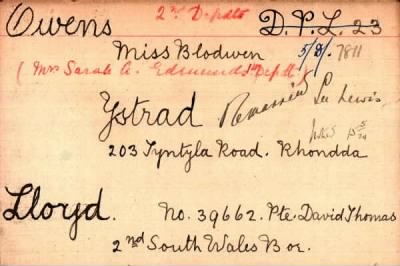 Owens 2nd Depdts D.P.L. 23
Miss Blodwen 5/8/. 7811
( Mrs Sarah A. Edmunds Dept )
Ystrad Remarried See Lewis
203 Tyntyla Road. Rhondda
Lloyd. No. 39662. Pte. David Thomas
2nd South Wales Bor.